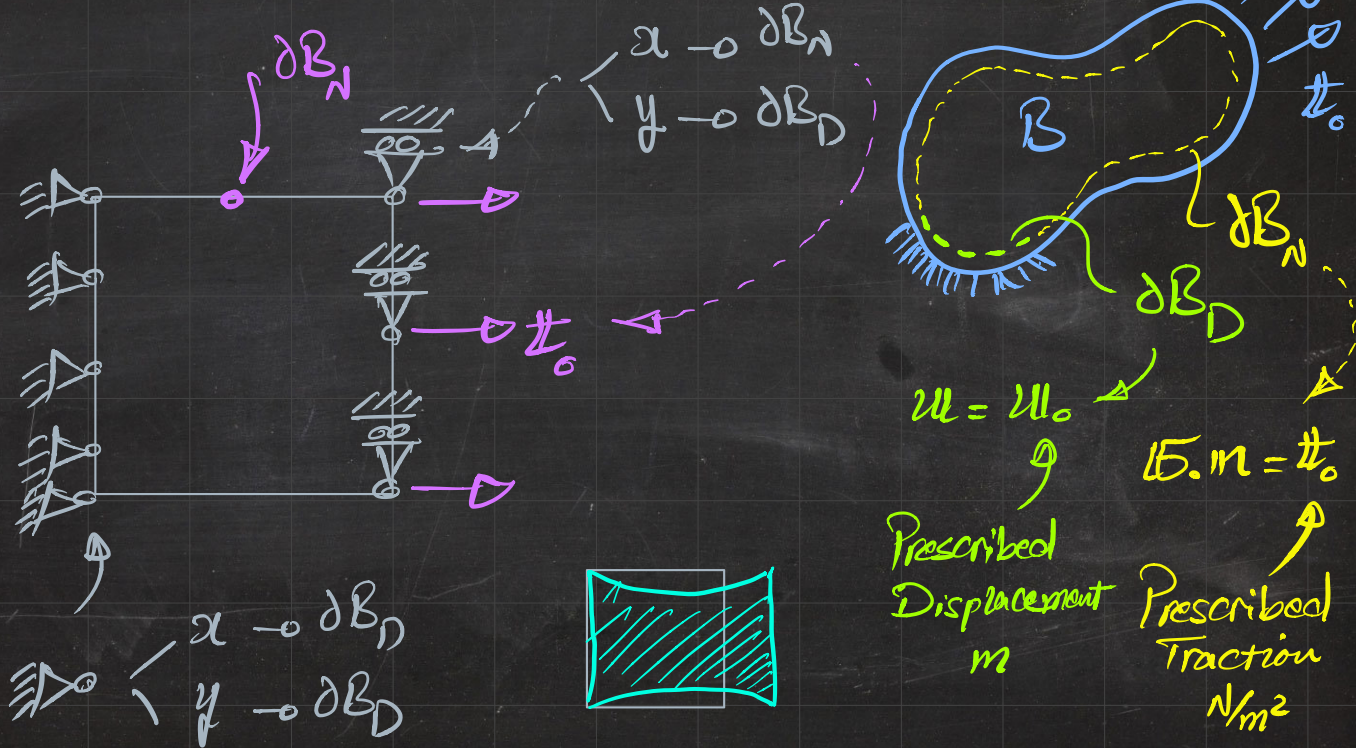 ∂B_N
x → ∂B_N
y → ∂B_D
t₀
B
t₀
∂B_N
∂B_D
u = u₀
σ.n = t₀
Prescribed
Displacement
m
Prescribed
Traction
N/m²
x → ∂B_D
y → ∂B_D